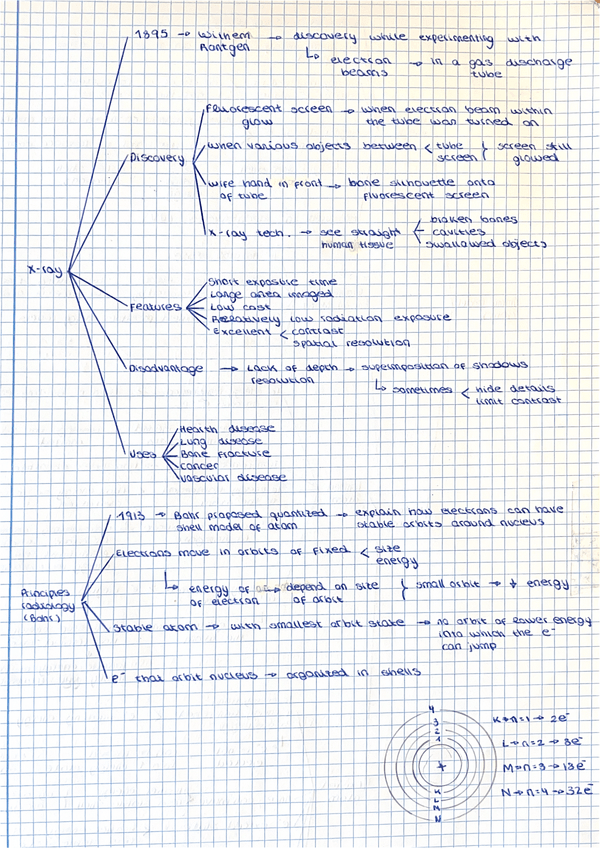 1895 → Wilhem → discovery while experimenting with
Röntgen ↳ electron → in a gas discharge
beams tube
Fluorescent screen → when electron beam within
glow the tube was turned on
Discovery when various objects between < tube } screen still
screen glowed
wife hand in front → bone silhouette onto
of tube fluorescent screen
X-ray tech. → see straight < broken bones
human tissue cavities
swallowed objects
X-ray
Features Short exposure time
Large area imaged
Low cost
Relatively low radiation exposure
Excellent < contrast
spatial resolution
Disadvantage → Lack of depth → superimposition of shadows
resolution ↳ sometimes < hide details
limit contrast
Uses Health disease
Lung disease
Bone fracture
cancer
vascular disease
1913 → Bohr proposed quantized → explain how electrons can have
shell model of atom stable orbits around nucleus
Electrons move in orbits of fixed < size
energy
↳ energy of → depend on size } small orbit → ↓ energy
of electron of orbit
Principles
radiology
(Bohr)
Stable atom → with smallest orbit state → no orbit of lower energy
into which the e⁻
can jump
e⁻ that orbit nucleus → organized in shells
4
3
2
1
+
K
L
M
N
K→n=1→ 2e⁻
L→n=2→8e⁻
M→n=3→18e⁻
N→n=4→32e⁻